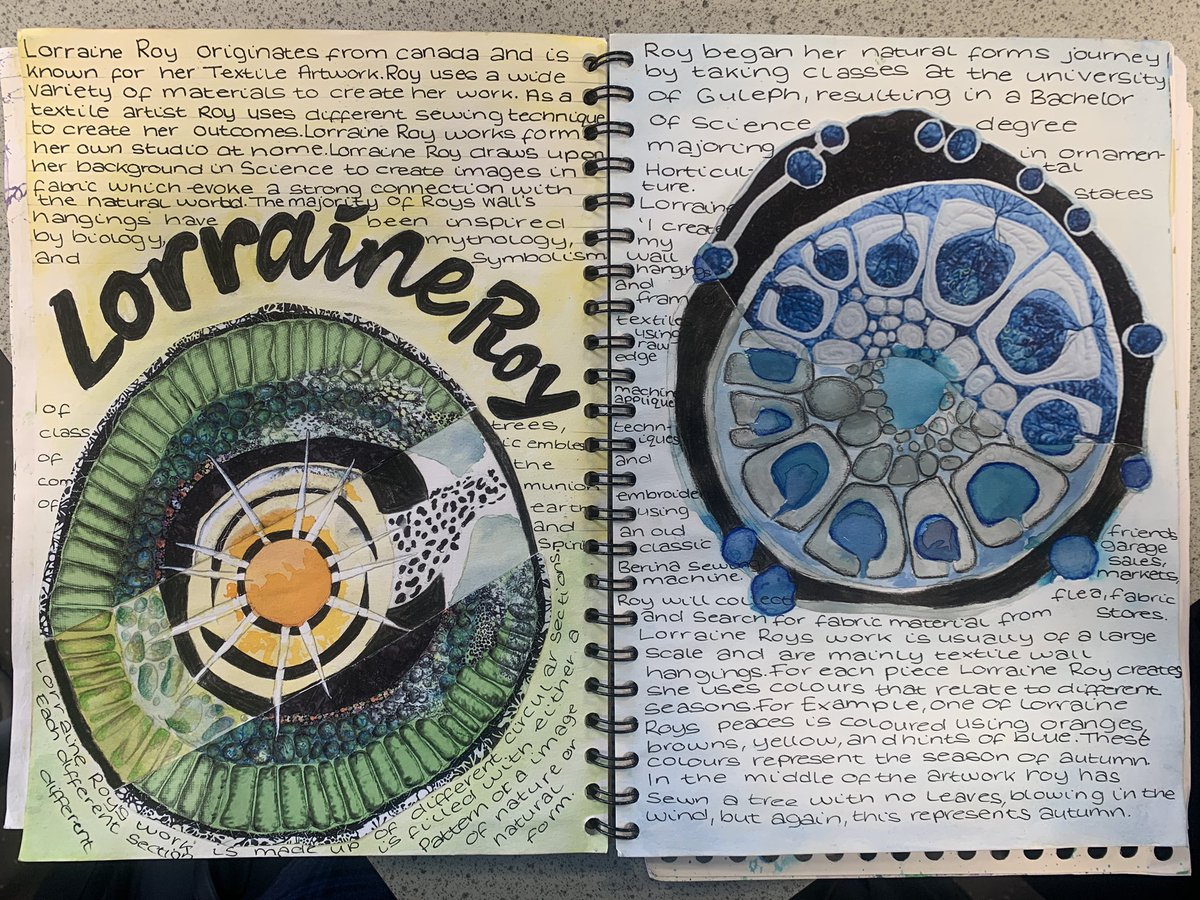 Lorraine Roy originates from canada and is
known for her Textile Artwork.Roy uses a wide
variety of materials to create her work. As a
textile artist Roy uses different sewing technique
to create her outcomes.Lorraine Roy works form
her own studio at home.Lorraine Roy draws upon
her background in Science to create images in
fabric which evoke a strong connection with
the natural world.The majority of Roys wall's
hangings have been inspired
by biology, mythology,
and Symbolism
Lorraine Roy
of trees,
class ic embles
of the
com munion
of earth
and
Spirit
Lorraine Roys work is made up of different circular sections.
Each different section is filled with either a
different Pattern or a image of nature or
natural form.
Roy began her natural forms journey
by taking classes at the university
of Guleph, resulting in a Bachelor
of science degree
majoring in ornamen-
Horticul- tal
ture. states
Lorraine
'I create my
wall
hangings
and
fram
textile
using
raw
edge
machine
applique
techn-
iques
and
embroide
using
an old friends
classic garage
Berina sew sales,
machine. markets,
Roy will collect flea, fabric
and search for fabric material from stores.
Lorraine Roys work is usually of a large
scale and are mainly textile wall
hangings.For each piece Lorraine Roy creates
she uses colours that relate to different
seasons.For Example, one of Lorraine
Roys peaces is coloured using oranges,
browns, yellow, and hints of blue. These
colours represent the season of autumn
In the middle of the artwork roy has
sewn a tree with no leaves, blowing in the
wind, but again, this represents autumn.